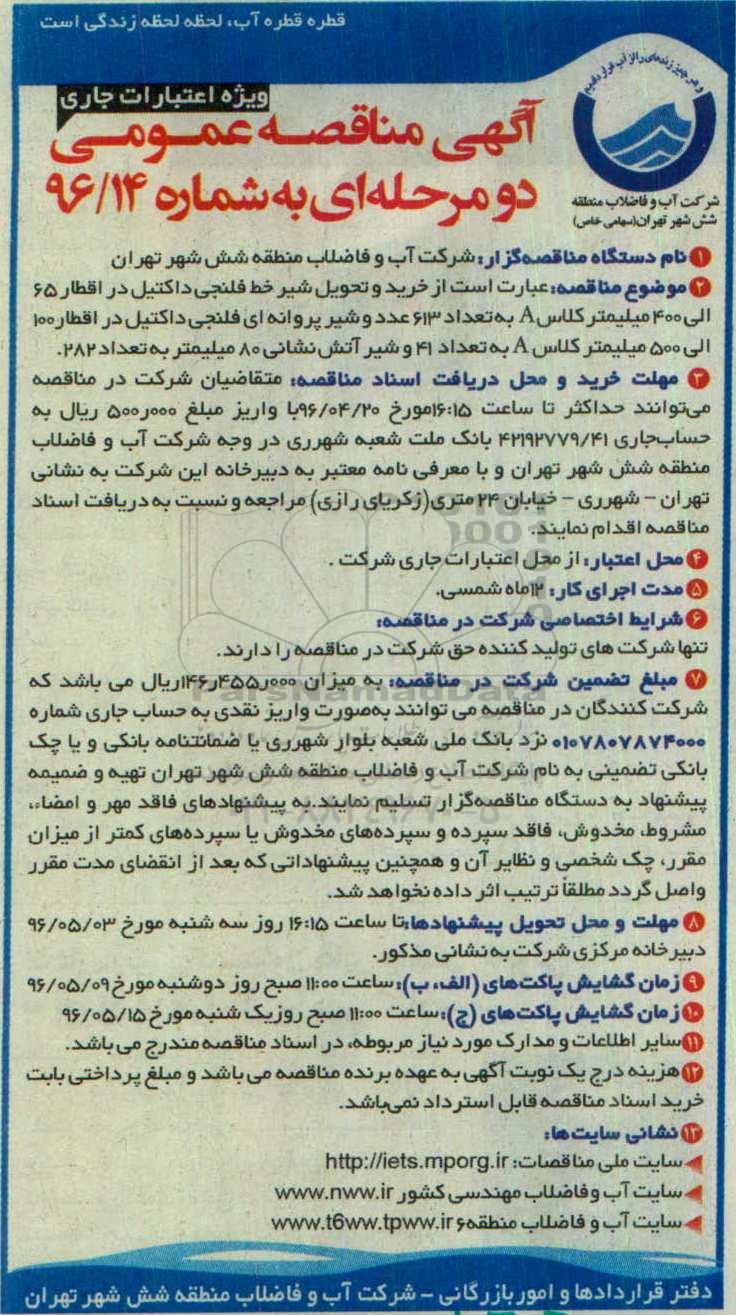 قطره قطره آب، لحظه لحظه زندگی است
و هر چیز زنده‌ای را از آب قرار دادیم
شرکت آب و فاضلاب منطقه
شش شهر تهران(سهامی خاص)
ویژه اعتبارات جاری
آگهی مناقصه عمومی
دو مرحله‌ای به شماره ۹۶/۱۴
۱ نام دستگاه مناقصه‌گزار: شرکت آب و فاضلاب منطقه شش شهر تهران
۲ موضوع مناقصه: عبارت است از خرید و تحویل شیر خط فلنجی داکتیل در اقطار ۶۵
الی ۴۰۰ میلیمتر کلاس A به تعداد ۶۱۳ عدد و شیر پروانه ای فلنجی داکتیل در اقطار ۱۰۰
الی ۵۰۰ میلیمتر کلاس A به تعداد ۴۱ و شیر آتش نشانی ۸۰ میلیمتر به تعداد ۲۸۲.
۳ مهلت خرید و محل دریافت اسناد مناقصه: متقاضیان شرکت در مناقصه
می‌توانند حداکثر تا ساعت ۱۶:۱۵مورخ ۹۶/۰۴/۲۰با واریز مبلغ ۵۰۰ر۰۰۰ ریال به
حساب‌جاری ۴۲۱۹۲۷۷۹/۴۱ بانک ملت شعبه شهرری در وجه شرکت آب و فاضلاب
منطقه شش شهر تهران و با معرفی نامه معتبر به دبیرخانه این شرکت به نشانی
تهران – شهرری – خیابان ۲۴ متری(زکریای رازی) مراجعه و نسبت به دریافت اسناد
مناقصه اقدام نمایند.
۴ محل اعتبار: از محل اعتبارات جاری شرکت .
۵ مدت اجرای کار: ۱۲ماه شمسی.
۶ شرایط اختصاصی شرکت در مناقصه:
تنها شرکت های تولید کننده حق شرکت در مناقصه را دارند.
۷ مبلغ تضمین شرکت در مناقصه: به میزان ۱۴۶ر۴۵۵ر۰۰۰ریال می باشد که
شرکت کنندگان در مناقصه می توانند به‌صورت واریز نقدی به حساب جاری شماره
۰۱۰۷۸۰۷۸۷۴۰۰۰ نزد بانک ملی شعبه بلوار شهرری یا ضمانتنامه بانکی و یا چک
بانکی تضمینی به نام شرکت آب و فاضلاب منطقه شش شهر تهران تهیه و ضمیمه
پیشنهاد به دستگاه مناقصه‌گزار تسلیم نمایند.به پیشنهادهای فاقد مهر و امضاء،
مشروط، مخدوش، فاقد سپرده و سپرده‌های مخدوش یا سپرده‌های کمتر از میزان
مقرر، چک شخصی و نظایر آن و همچنین پیشنهاداتی که بعد از انقضای مدت مقرر
واصل گردد مطلقاً ترتیب اثر داده نخواهد شد.
۸ مهلت و محل تحویل پیشنهادها:تا ساعت ۱۶:۱۵ روز سه شنبه مورخ ۹۶/۰۵/۰۳
دبیرخانه مرکزی شرکت به نشانی مذکور.
۹ زمان گشایش پاکت‌های (الف، ب): ساعت ۱۱:۰۰ صبح روز دوشنبه مورخ ۹۶/۰۵/۰۹
۱۰ زمان گشایش پاکت‌های (ج): ساعت ۱۱:۰۰ صبح روزیک شنبه مورخ ۹۶/۰۵/۱۵
۱۱ سایر اطلاعات و مدارک مورد نیاز مربوطه، در اسناد مناقصه مندرج می باشد.
۱۲ هزینه درج یک نوبت آگهی به عهده برنده مناقصه می باشد و مبلغ پرداختی بابت
خرید اسناد مناقصه قابل استرداد نمی‌باشد.
۱۳ نشانی سایت ها:
سایت ملی مناقصات: http://iets.mporg.ir
سایت آب وفاضلاب مهندسی کشور www.nww.ir
سایت آب و فاضلاب منطقه۶ www.t6ww.tpww.ir
دفتر قراردادها و امور بازرگانی – شرکت آب و فاضلاب منطقه شش شهر تهران